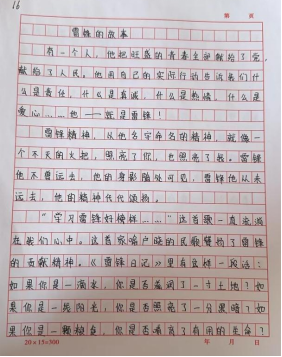 16
第 页
雷锋的故事
有一个人，他把旺盛的青春全部献给了党，
献给了人民，他用自己的实际行动告诉我们什
么是责任，什么是真诚，什么是热情，什么是
爱心……他——就是雷锋！
雷锋精神，以他名字命名的精神，就像一
个不灭的火把，照亮了你，也照亮了我。雷锋
他不曾远去，他的身影随处可见，雷锋他从未
远去，他的精神代代颂扬。
“学习雷锋好榜样……”这首歌一直流淌
在我们心中。这首家喻户晓的民歌赞扬了雷锋
的贡献精神。《雷锋日记》里有这样一段话：
如果你是一滴水，你是否滋润了一寸土地？如
果你是一线阳光，你是否照亮了一分黑暗？如
果你是一颗粮食，你是否哺育了有用的生命？
20×15=300
年 月 日